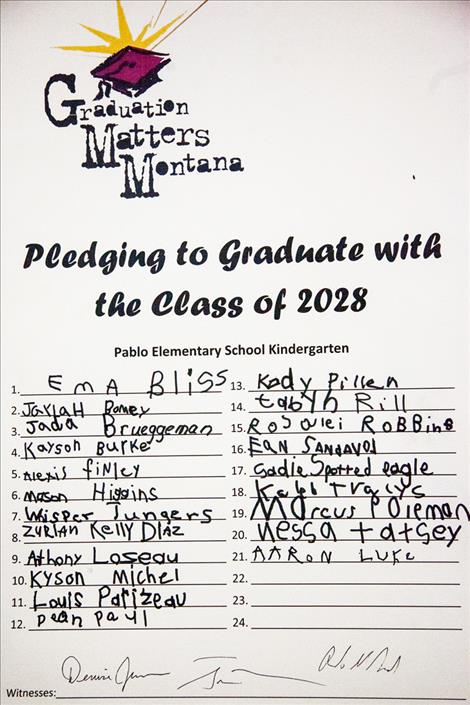 Graduation
Matters
Montana
Pledging to Graduate with
the Class of 2028
Pablo Elementary School Kindergarten
1. EmA Bliss
2. Jaylah Bomey
3. Jada Brueggeman
4. Kayson Burke
5. Alexis finley
6. Mason Higgins
7. Whisper Jungers
8. ZURIAH Kelly DIAz
9. Athony Loseau
10. Kyson Michel
11. Louis Parizeau
12. pean paul
13. Kody Pillen
14. Rill
15. RoSalei RoBBins
16. EAN SANdAVOl
17. Sadie Spotted eagle
18.
19. Marcus
20. Nessa tatsey
21. AARON LUKE
22.
23.
24.
Witnesses: